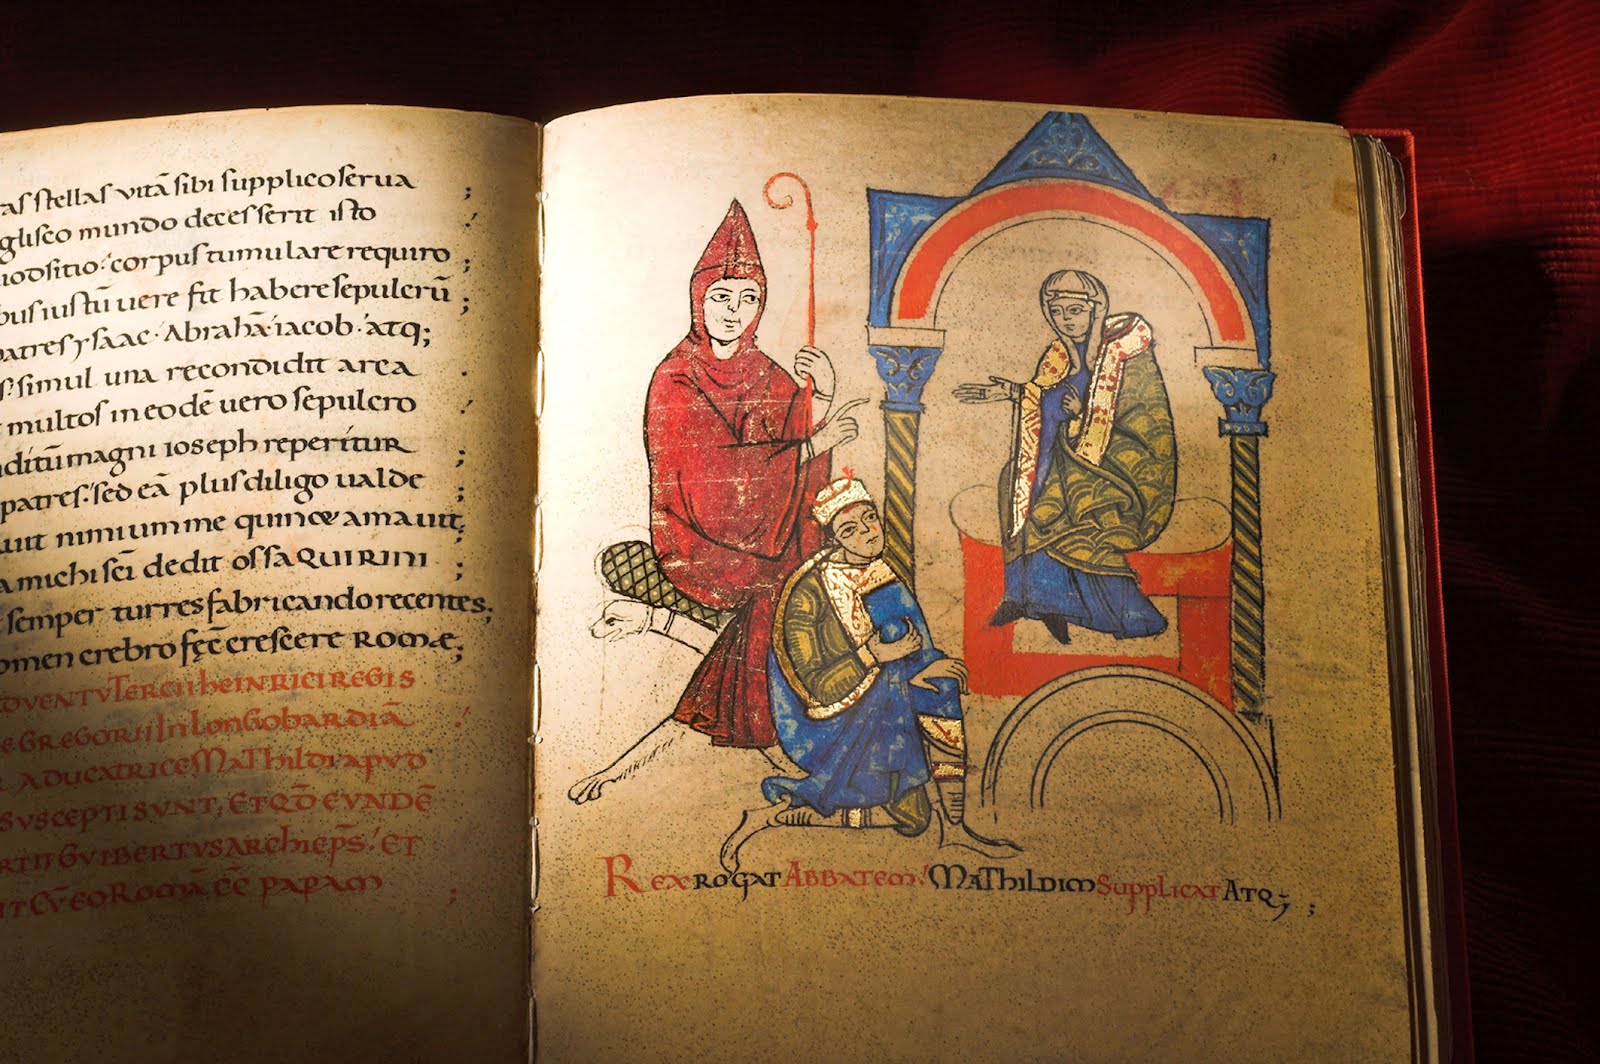 as stellas vitā sibi supplico serua ;
glisco mundo decesserit isto
odsitio. corpus tumulare requiro ;
bus iustū uere fit habere sepulcrū ;
patres ysaac. Abrahā. iacob. atq;
simul una recondidit arca .
multos in eodē uero sepulcro
magni ioseph reperitur ;
patres. sed eā plus diligo ualde ;
nimium me quinoe amauit;
michi scī dedit ossa QUIRINI ;
semper turres fabricando recentes;
omen crebro fęc̄ crescere ROMÆ;
ADVENTV TERCII hEINRICI REGIS
GREGORII IN LONGOBARDIĀ
ADUCATRICE MAThILDI APVD
SVSCEPTI SVNT, ET QD̄ EVNDĒ
GVIBERTVS ARChIEPS̄. ET
ROMĀ EC̄ PAPAM ;
REX ROGAT ABBATEM! MAThILDIM SUPPLICAT ATQ; ;